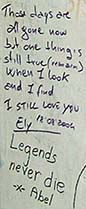 Those days are
all gone now
but one thing's
still true (remain)
When I look
and I find
I still love you
Ely 18 08 2004
Legends
never die
-x- Abel